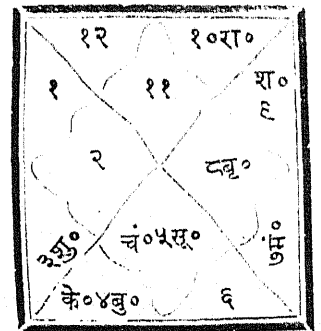 १२ १०रा०
१ ११ श०
९
२ ८बृ०
३शु० चं०५सू० ७मं०
के०४बु० ६